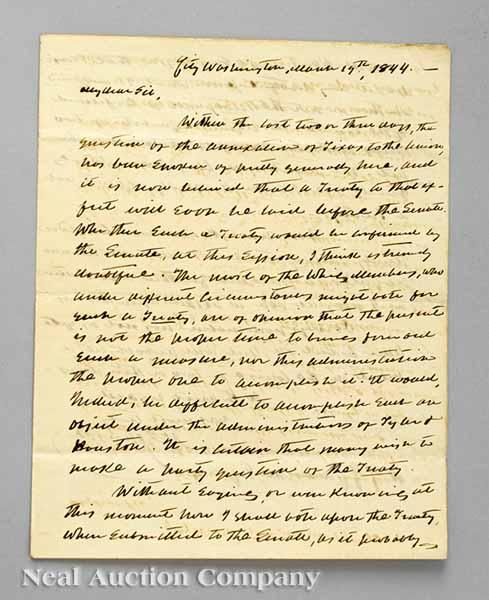 City Washington, March 19th, 1844. —
My dear Sir,
Within the last two or three days, the
question of the annexation of Texas to the Union,
has been spoken of pretty generally here, and
it is now believed that a Treaty to that ef-
fect will soon be laid before the Senate.
Whether such a Treaty would be confirmed by
the Senate, at this session, I think is
doubtful. The most of the Whig Members, who
under different circumstances might vote for
such a Treaty, are of opinion that the present
is not the proper time to bring forward
such a measure, nor this administration
the proper one to accomplish it. It would,
indeed, be difficult to accomplish such an
object under the administrations of Tyler &
Houston. It is certain that many wish to
make a party question of the Treaty.
Without saying, or even knowing at
this moment how I shall vote upon the Treaty,
when submitted to the Senate, as it probably
Neal Auction Company